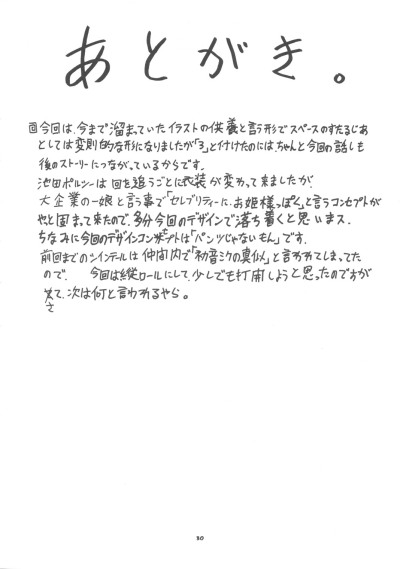 あとがき。
回今回は、今まで溜まっていたイラストの供養と言う形でスペースのすたるじあ
としては変則的な形になりましたが「3」と付けたのにはちゃんと今回の話しも
後のストーリーにつながっているからです。
池田ポルシーは回を追うごとに衣装が変わって来ましたが
大企業の一娘と言う事で「セレブリティーに、お姫様っぽく」と言うコンセプトが
やっと固まって来たので、多分今回のデザインで落ち着くと思います。
ちなみに今回のデザインコンセプトは「パンツじゃないもん」です。
前回までのツインテールは仲間内で「初音ミクの真似」と言われてしまってた
ので、 今回は縦ロールにして、少しでも打開しようと思ったのですが
さて、次は何と言われるやら。
30